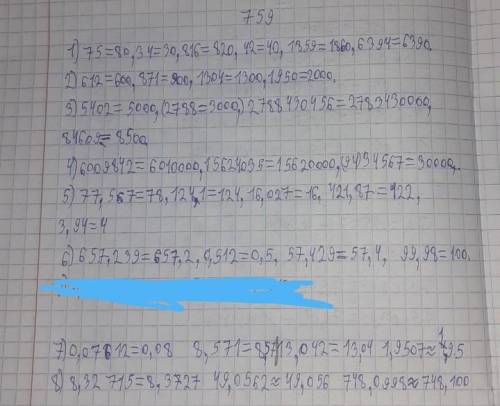 759
1) 75=80, 34=30, 816=820, 42=40, 1359=1360, 6394=6390.
2) 612=600, 871=900, 1304=1300, 1950=2000.
3) 5402=5000, (2788=3000,) 2788430456=2783430000,
84609=8500,
4) 6009842=6010000, 15624039=15620000, (4)34567=30000,.
5) 77,567=78, 124,1=124, 16,027=16, 421,87=422,
3,94=4
6) 657,239=657,2, 0,512=0,5, 57,429=57,4, 99,98=100.
7) 0,07612=0,08 8,571=8,57 13,042=13,04 1,9507≈1,95
8) 8,32 715=8,3727 49,0562≈49,056 748,0998≈748,100